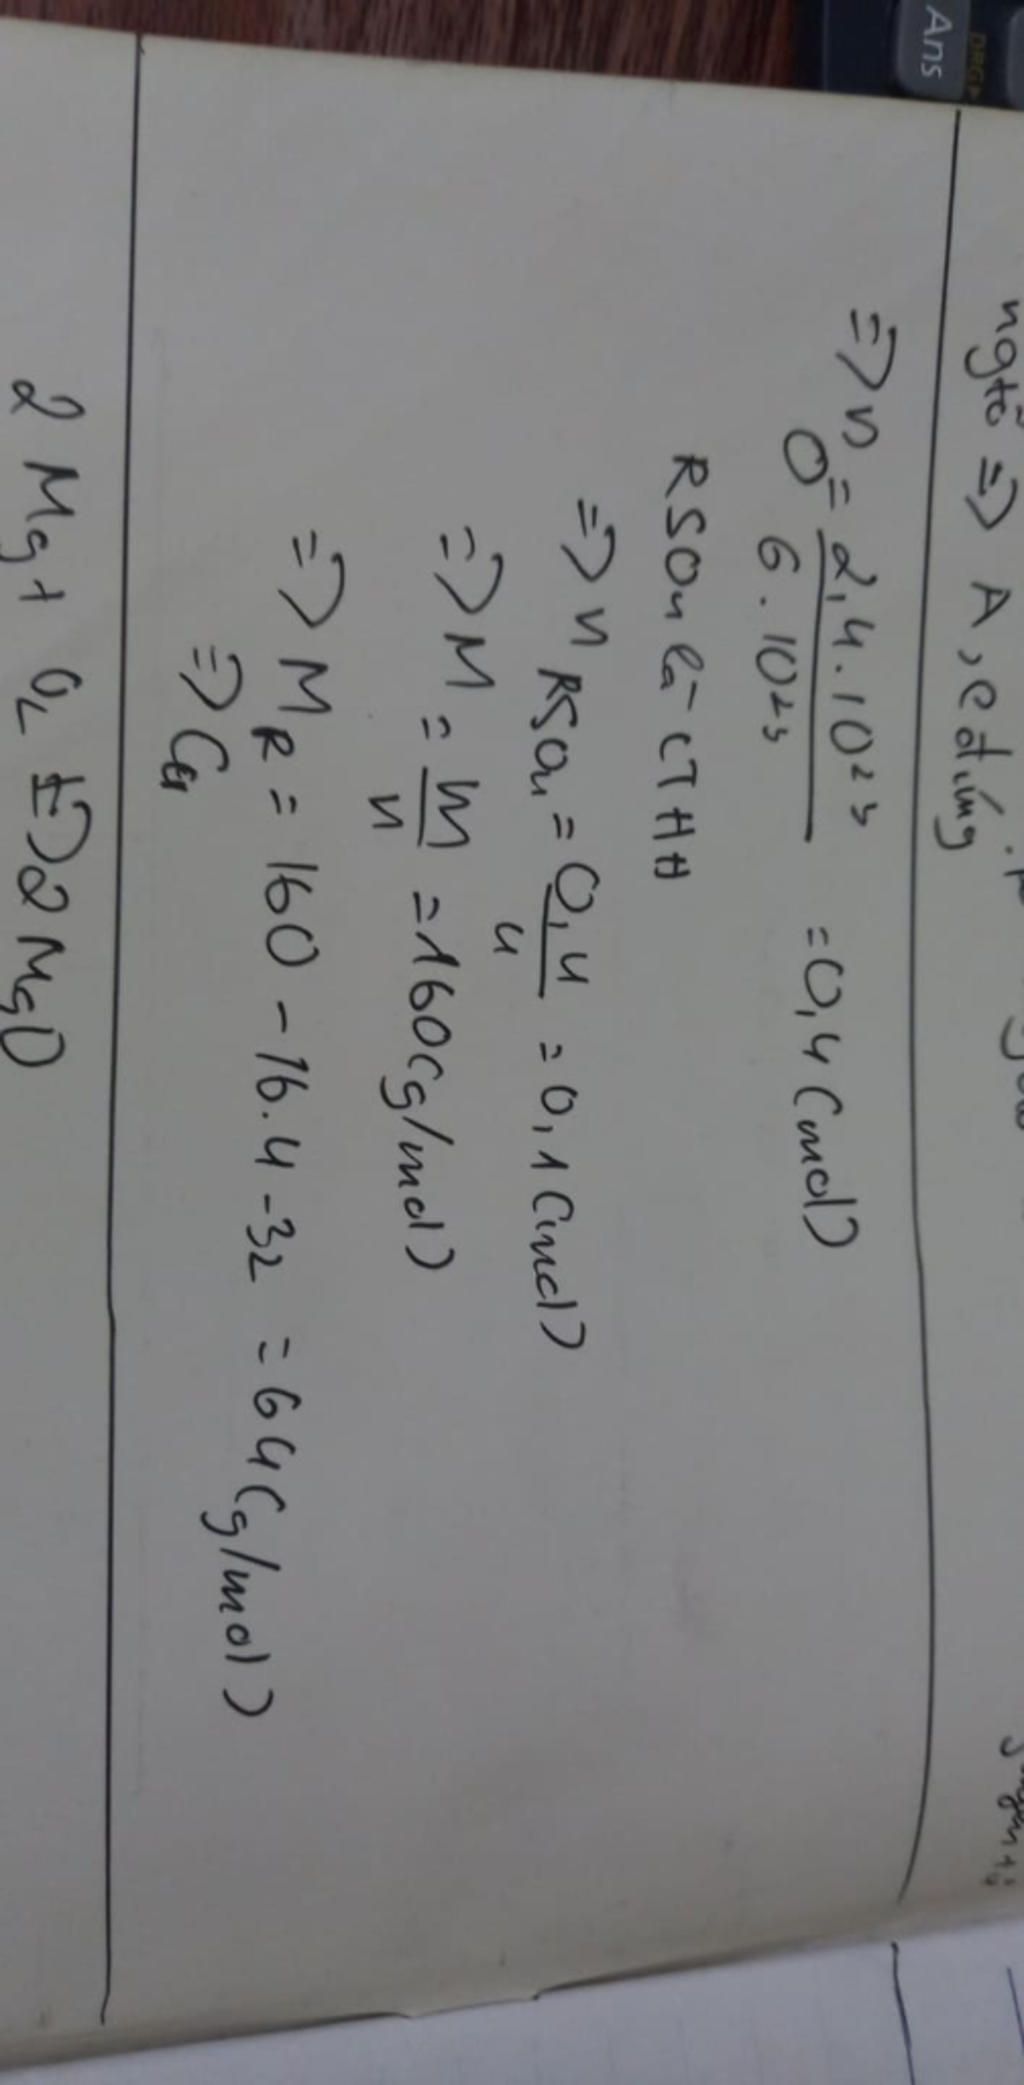 DRG▸
Ans
ngtố => A, e đúng
=> n O = 2,4.10²³ / 6.10²³ = 0,4 (mol)
RSO₄ là CTHH
=> n RSO₄ = 0,4 / 4 = 0,1 (mol)
=> M = m / n = 160 (g/mol)
=> M R = 160 - 16.4 - 32 = 64 (g/mol)
=> Cu
2 Mg + O₂ t=> 2 MgO